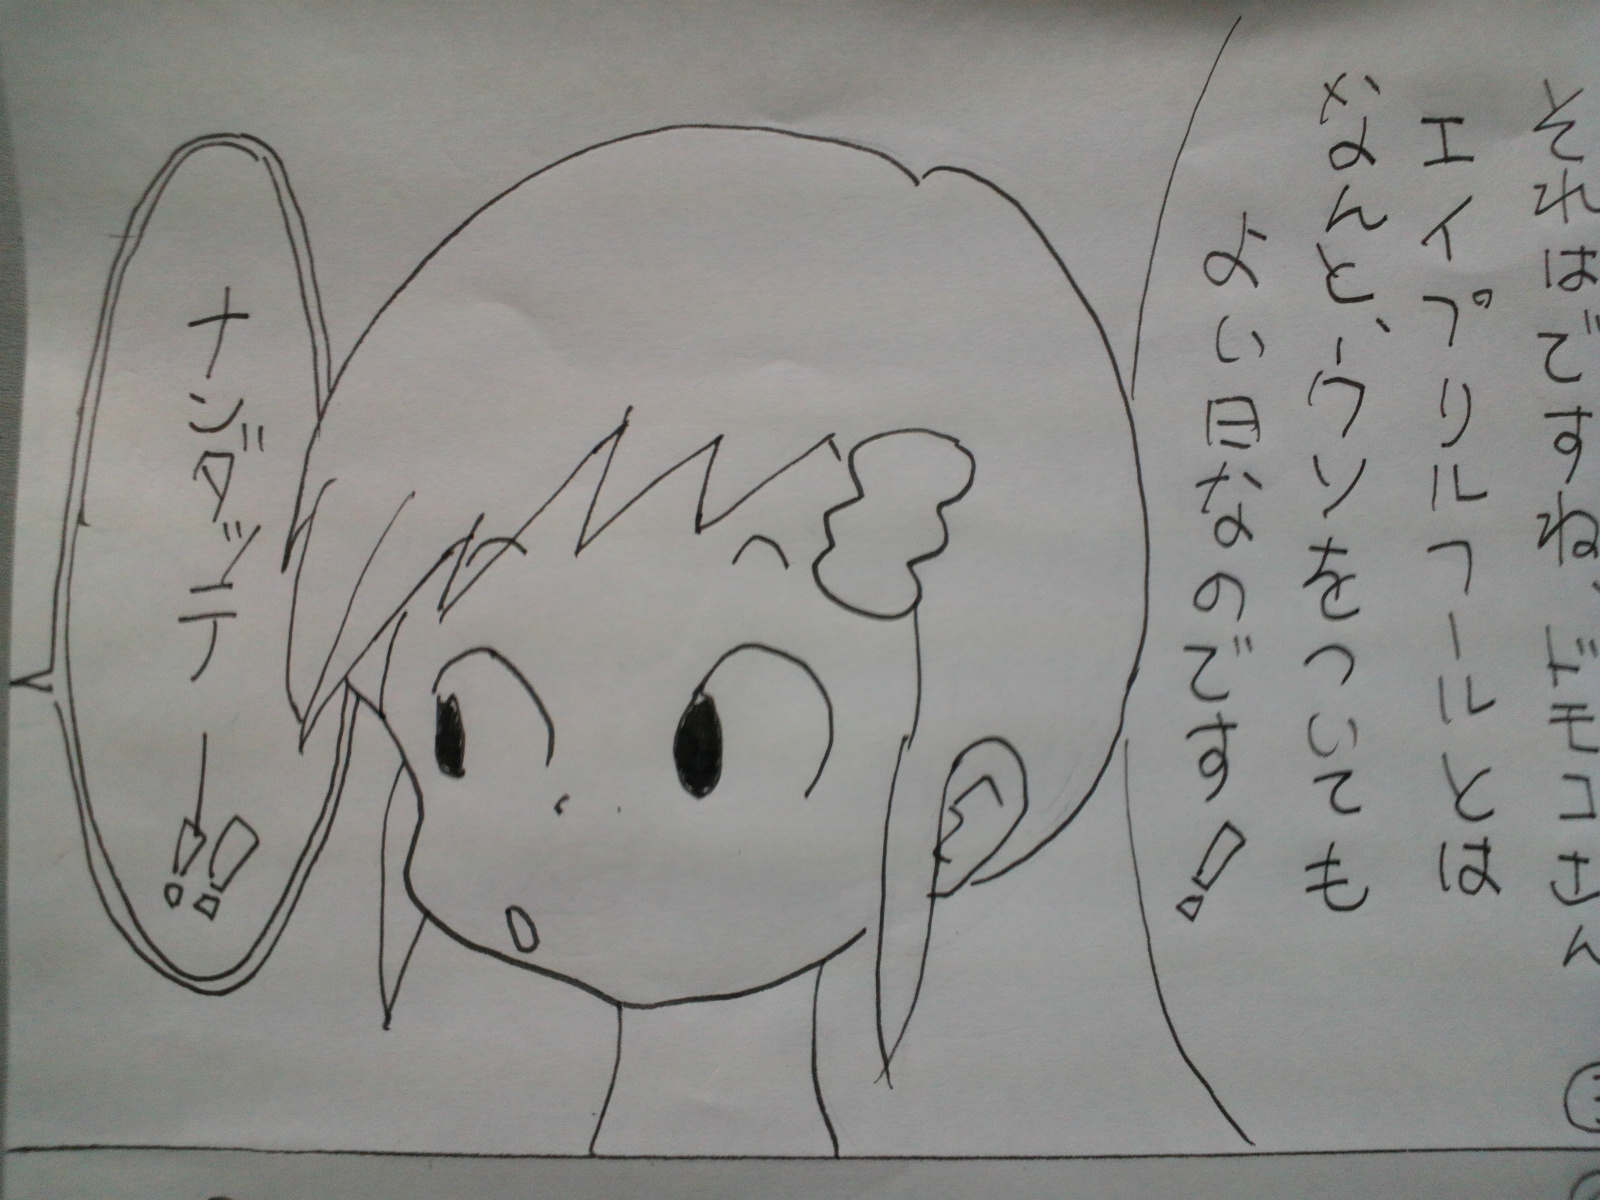 それはですね、ドモコさん
エイプリルフールとは
なんと、ウソをついても
よい日なのです!
ナンダッテー!!